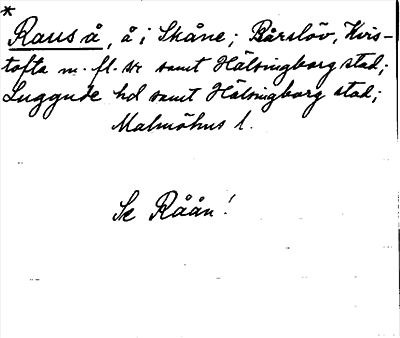 *
Raus å, å i Skåne; Bårslöv, Kvis-
tofta m. fl. snr samt Hälsingborg stad;
Luggude hd samt Hälsingborg stad;
Malmöhus l.
Se Råån!